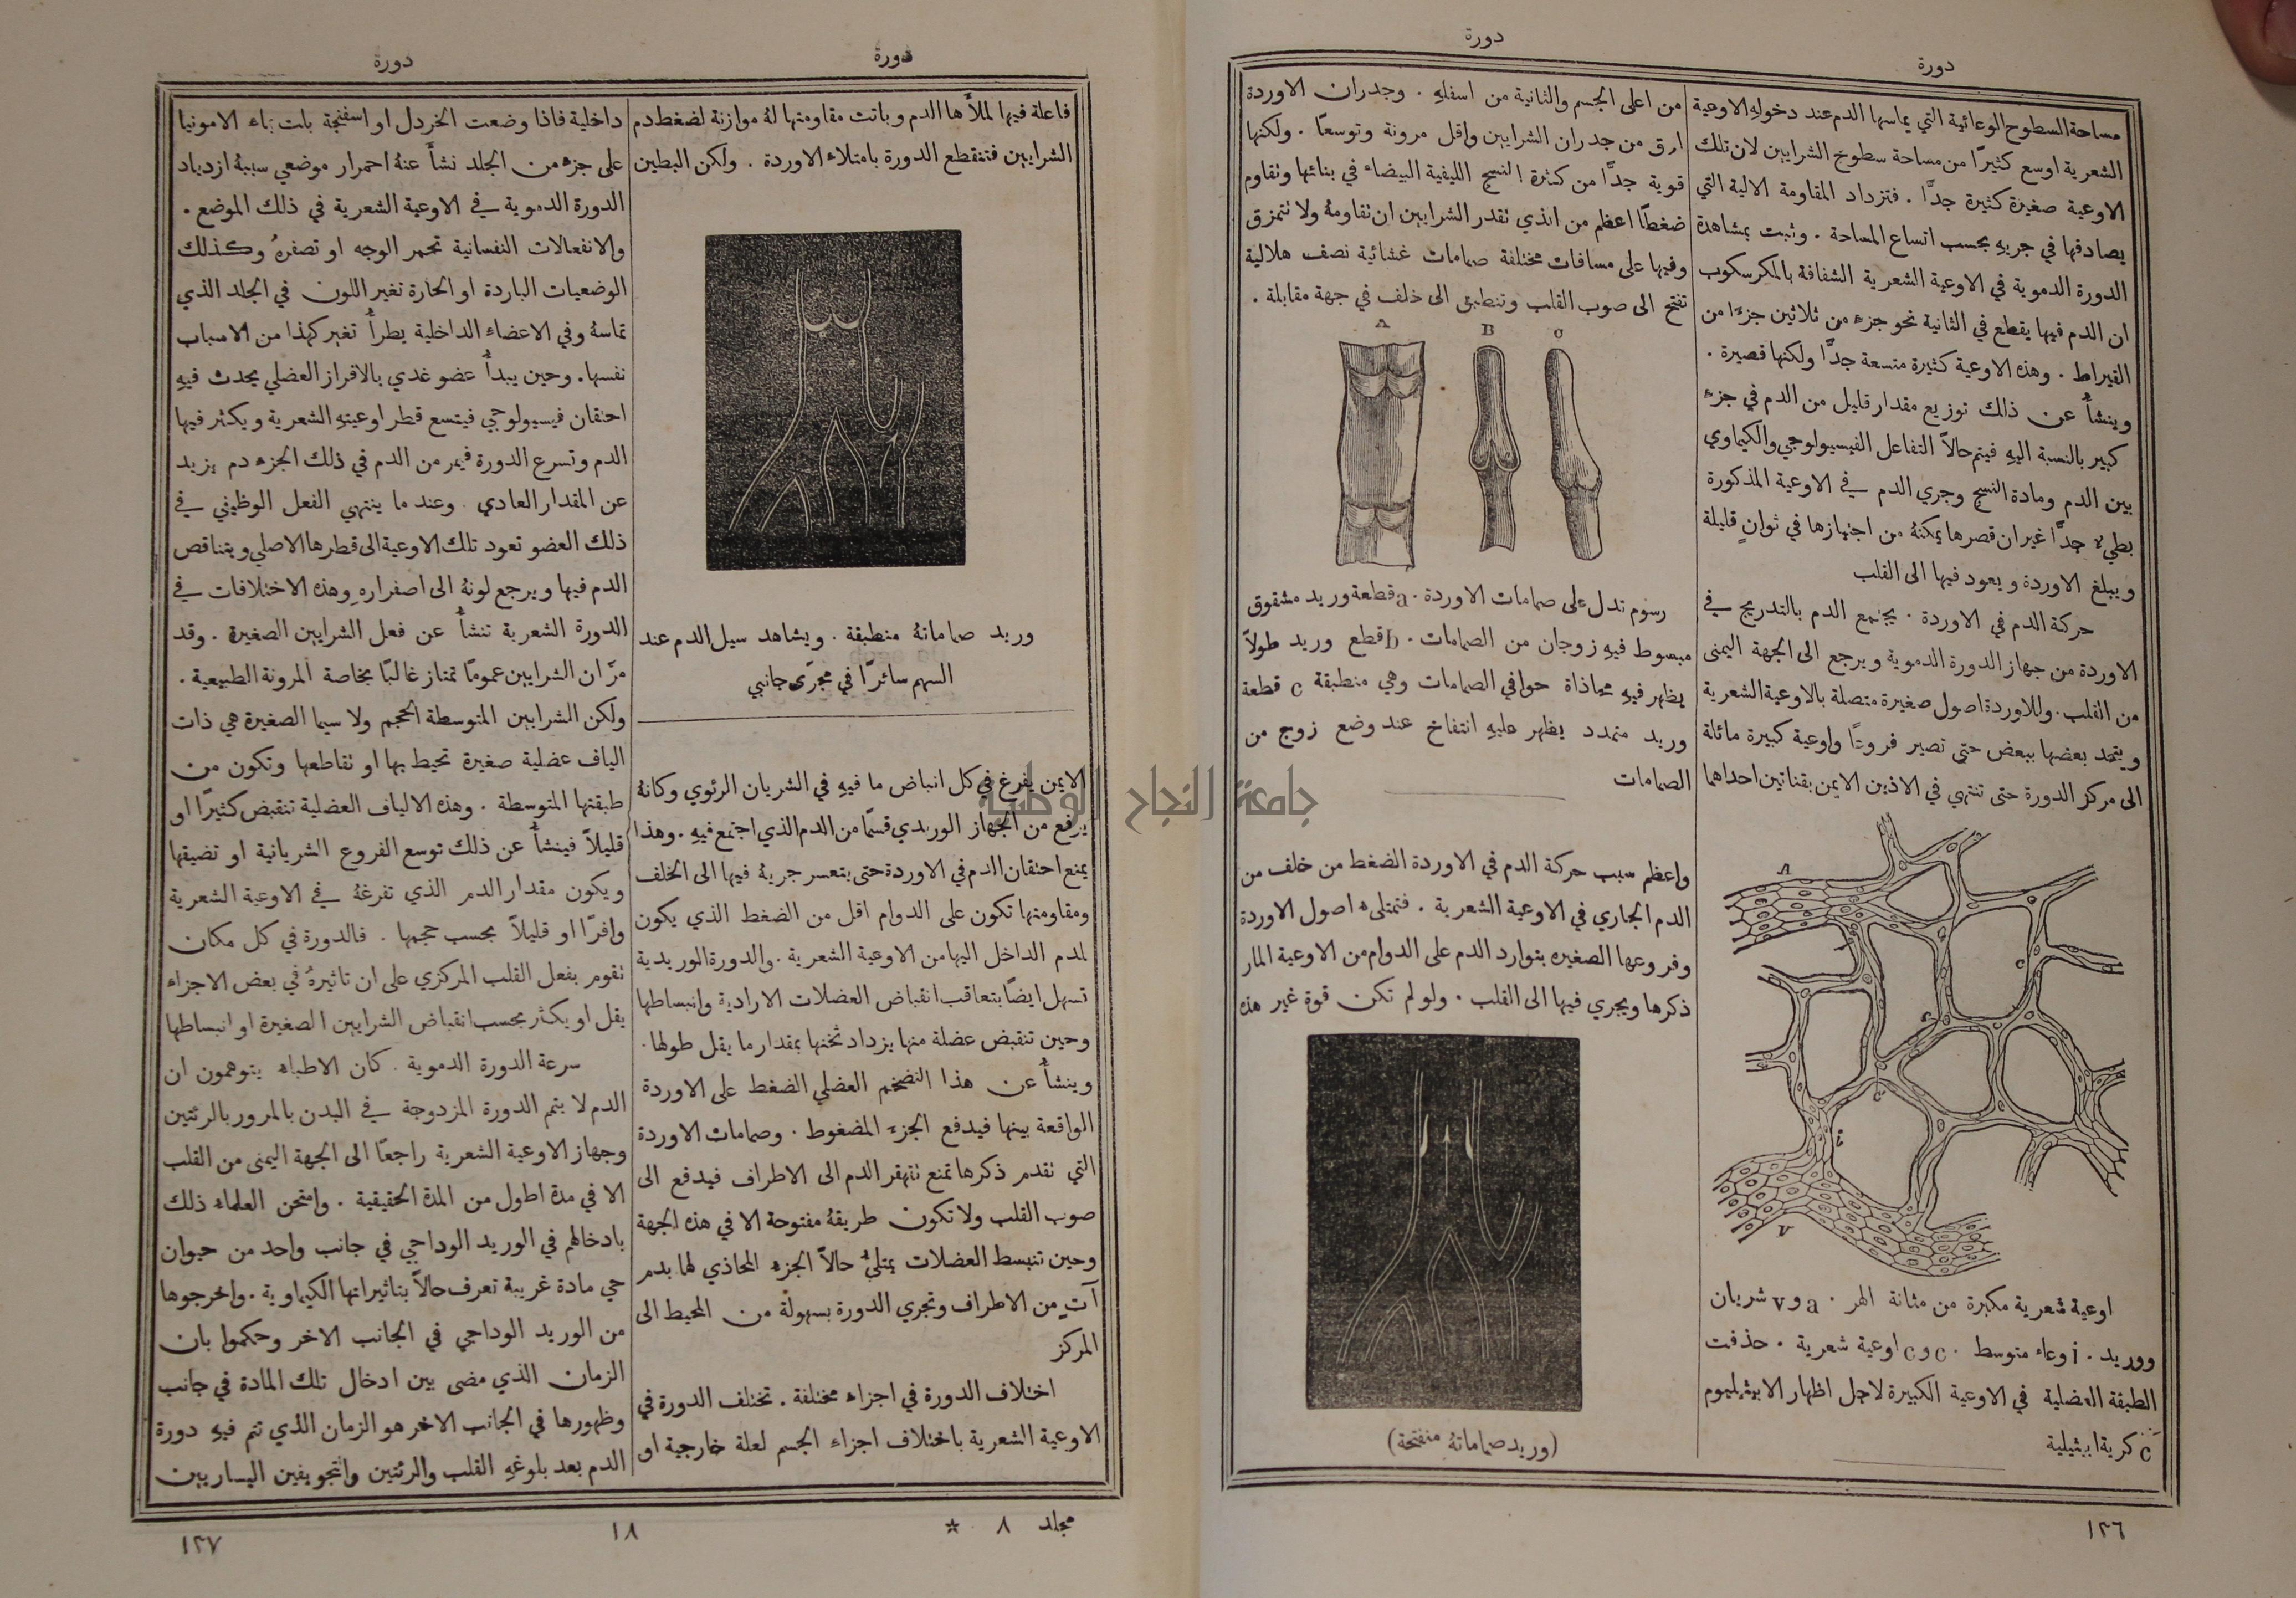 دورة
دورة
مساحة السطوح الوعائية التي يماسها الدم عند دخولهِ الاوعية
الشعرية اوسع كثيرًا من مساحة سطوح الشرايين لان تلك
الاوعية صغيرة كثيرة جدًّا . فتزداد المقاومة الآلية التي
يصادفها في جريهِ بحسب اتساع المساحة . وثبت بمشاهدة
الدورة الدموية في الاوعية الشعرية الشفافة بالمكرسكوب
ان الدم فيها يقطع في الثانية نحو جزء من ثلاثين جزءًا من
القيراط . وهذه الاوعية كثيرة متسعة جدًّا ولكنها قصيرة .
وينشأ عن ذلك توزيع مقدار قليل من الدم في جزء
كبير بالنسبة اليهِ فيتم حالاً التفاعل الفيسيولوجي والكيماوي
بين الدم ومادة النسيج وجري الدم في الاوعية المذكورة
بطيء جدًّا غير ان قصرها يمكنهُ من اجتيازها في ثوانٍ قليلة
ويبلغ الاوردة ويعود فيها الى القلب
حركة الدم في الاوردة . يجتمع الدم بالتدريج في
الاوردة من جهاز الدورة الدموية ويرجع الى الجهة اليمنى
من القلب . وللاوردة اصول صغيرة متصلة بالاوعية الشعرية
ويتحد بعضها ببعض حتى تصير فروعًا واوعية كبيرة مائلة
الى مركز الدورة حتى تنتهي في الاذين الايمن بقناتين احداهما
A
c
c
c
i
V
اوعية شعرية مكبرة من مثانة الهر . a و v شريان
ووريد . i وعاء متوسط . c و c اوعية شعرية . حذفت
الطبقة العضلية في الاوعية الكبيرة لاجل اظهار الابيثيليوم
c كرية ابيثيلية
من اعلى الجسم والثانية من اسفلهِ . وجدران الاوردة
ارق من جدران الشرايين واقل مرونة وتوسعًا . ولكنها
قوية جدًّا من كثرة النسج الليفية البيضاء في بنائها وتقاوم
ضغطًا اعظم من الذي تقدر الشرايين ان تقاومهُ ولا تتمزق
وفيها على مسافات مختلفة صمامات غشائية نصف هلالية
تفتح الى صوب القلب وتنطبق الى خلف في جهة مقابلة .
A B C
رسوم تدل على صمامات الاوردة . a قطعة وريد مشقوق
مبسوط فيهِ زوجان من الصمامات . b قطع وريد طولاً
يظهر فيهِ محاذاة حوافي الصمامات وهي منطبقة c قطعة
وريد متمدد يظهر عليهِ انتفاخ عند وضع زوج من
الصمامات
واعظم سبب حركة الدم في الاوردة الضغط من خلف من
الدم الجاري في الاوعية الشعرية . فتمتلىء اصول الاوردة
وفروعها الصغيره بتوارد الدم على الدوام من الاوعية المار
ذكرها ويجري فيها الى القلب . ولو لم تكن قوة غير هذه
(وريد صماماتهُ منفتحة)
١٣٦
دورة
دورة
فاعلة فيها لملأَها الدم وباتت مقاومتها لهُ موازنة لضغط دم
الشرايين فتنقطع الدورة بامتلاء الاوردة . ولكن البطين
وريد صماماتهُ منطبقة . ويشاهد سيل الدم عند
السهم سائرًا في مجرًى جانبي
الايمن يفرغ في كل انباض ما فيهِ في الشريان الرئوي وكانهُ
يرفع من الجهاز الوريدي قسمًا من الدم الذي اجتمع فيهِ . وهذا
يمنع احتقان الدم في الاوردة حتى يتعسر جريهُ فيها الى الخلف
ومقاومتها تكون على الدوام اقل من الضغط الذي يكون
لمدم الداخل اليها من الاوعية الشعرية . والدورة الوريدية
تسهل ايضًا بتعاقب انقباض العضلات الارادية وانبساطها
وحين تنقبض عضلة منها يزداد ثخنها بمقدار ما يقل طولها .
وينشأ عن هذا التضخم العضلي الضغط على الاوردة
الواقعة بينها فيدفع الجزء المضغوط . وصمامات الاوردة
التي تقدم ذكرها تمنع تقهقر الدم الى الاطراف فيدفع الى
صوب القلب ولا تكون طريقهُ مفتوحة الا في هذه الجهة
وحين تنبسط العضلات يمتلئ حالاً الجزء المحاذي لها بدم
آتٍ من الاطراف وتجري الدورة بسهولة من المحيط الى
المركز
اختلاف الدورة في اجزاء مختلفة . تختلف الدورة في
الاوعية الشعرية باختلاف اجزاء الجسم لعلة خارجية او
داخلية فاذا وضعت الخردل او اسفنجة بلت بماء الامونيا
على جزء من الجلد نشأ عنهُ احمرار موضعي سببهُ ازدياد
الدورة الدموية في الاوعية الشعرية في ذلك الموضع .
والانفعالات النفسانية تحمر الوجه او تصفرهُ وكذلك
الوضعيات الباردة او الحارة تغير اللون في الجلد الذي
تماسهُ وفي الاعضاء الداخلية يطرأُ تغير كهذا من الاسباب
نفسها . وحين يبدأُ عضو غدي بالافراز العضلي يحدث فيهِ
احتقان فيسيولوجي فيتسع قطر اوعيتهِ الشعرية ويكثر فيها
الدم وتسرع الدورة فيمر من الدم في ذلك الجزء دم يزيد
عن المقدار العادي . وعند ما ينتهي الفعل الوظيفي في
ذلك العضو تعود تلك الاوعية الى قطرها الاصلي ويتناقص
الدم فيها ويرجع لونهُ الى اصفرارهِ وهذه الاختلافات في
الدورة الشعرية تنشأُ عن فعل الشرايين الصغيرة . وقد
مرّ ان الشرايين عمومًا تمتاز غالبًا بخاصة المرونة الطبيعية .
ولكن الشرايين المتوسطة الحجم ولا سيما الصغيرة هي ذات
الياف عضلية صغيرة تحيط بها او تقاطعها وتكون من
طبقتها المتوسطة . وهذه الالياف العضلية تنقبض كثيرًا او
قليلاً فينشأُ عن ذلك توسع الفروع الشريانية او تضيقها
ويكون مقدار الدم الذي تفرغهُ في الاوعية الشعرية
وافرًا او قليلاً بحسب حجمها . فالدورة في كل مكان
تقوم بفعل القلب المركزي على ان تاثيرهُ في بعض الاجزاء
يقل او يكثر بحسب انقباض الشرايين الصغيرة او انبساطها
سرعة الدورة الدموية . كان الاطباء يتوهمون ان
الدم لا يتم الدورة المزدوجة في البدن بالمرور بالرئتين
وجهاز الاوعية الشعرية راجعًا الى الجهة اليمنى من القلب
الا في مدة اطول من المدة الحقيقية . وامتحن العلماء ذلك
بادخالهم في الوريد الوداجي في جانب واحد من حيوان
حي مادة غريبة تعرف حالاً بتاثيراتها الكيماوية . واخرجوها
من الوريد الوداجي في الجانب الاخر وحكموا بان
الزمان الذي مضى بين ادخال تلك المادة في جانب
وظهورها في الجانب الاخر هو الزمان الذي تتم فيهِ دورة
الدم بعد بلوغهِ القلب والرئتين والتجويفين اليساريين
مجلد ٨ *
١٨
١٣٧
جامعة النجاح الوطنية